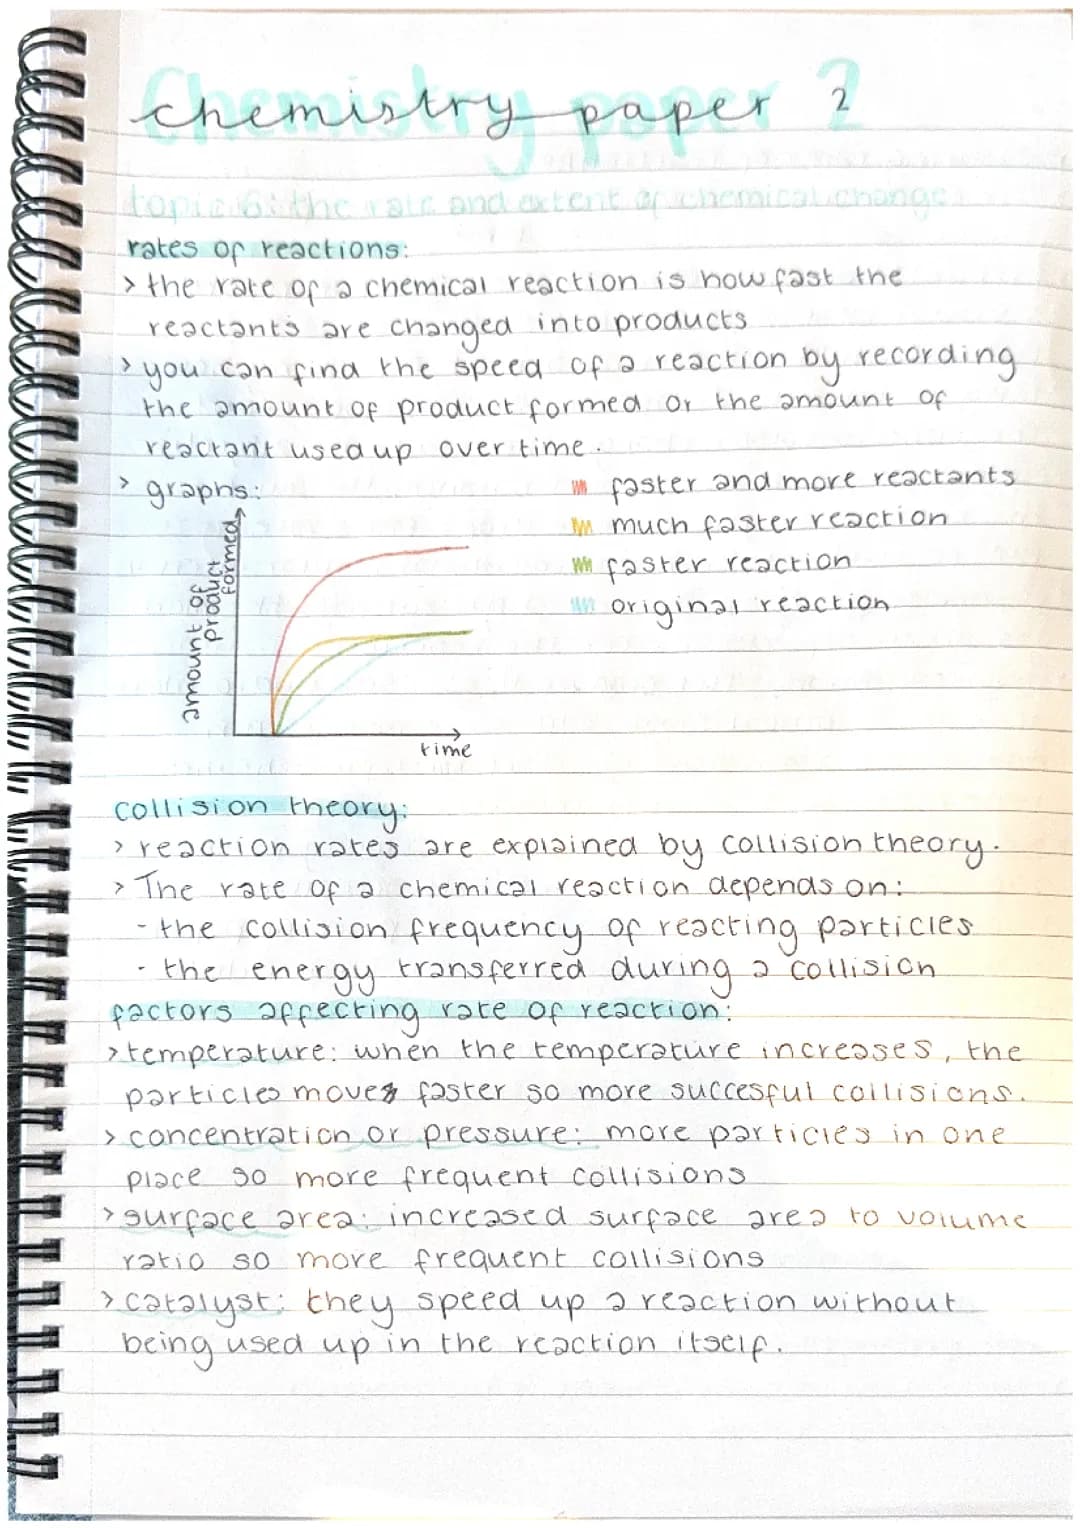 Chemistry paper 2
topic 6: the rate and extent of chemical change
rates of reactions:
> the rate of a chemical reaction is how fast the
reactants are changed into products
> you can find the speed of a reaction by recording
the amount of product formed or the amount of
reactant used up over time.
> graphs:
faster and more reactants
much faster reaction
faster reaction
original reaction
amount of
product
formed
time
collision theory:
> reaction rates are explained by collision theory.
> The rate of a chemical reaction depends on:
- the collision frequency of reacting particles
- the energy transferred during a collision
factors affecting rate of reaction:
> temperature: when the temperature increases, the
particles move faster so more succesful collisions.
> concentration or pressure: more particles in one
place so more frequent collisions
> surface area: increased surface area to volume
ratio so more frequent collisions
> catalyst: they speed up a reaction without
being used up in the reaction itself.